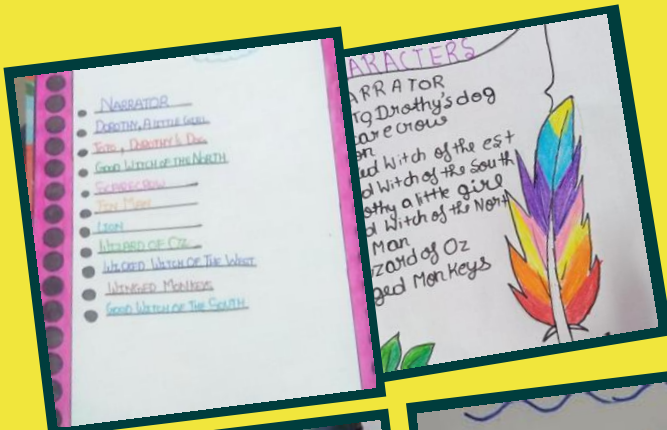 NARRATOR
DOROTHY, A LITTLE GIRL
TOTO, DOROTHY'S DOG
GOOD WITCH OF THE NORTH
SCARECROW
TIN MAN
LION
WIZARD OF OZ
WICKED WITCH OF THE WEST
WINGED MONKEYS
GOOD WITCH OF THE SOUTH
ARACTERS
ARRATOR
TO Drothy's dog
carecrow
on
ed Witch of the est
d Witch of the South
othy a little girl
d Witch of the Nort
Man
izard of Oz
ged Monkeys